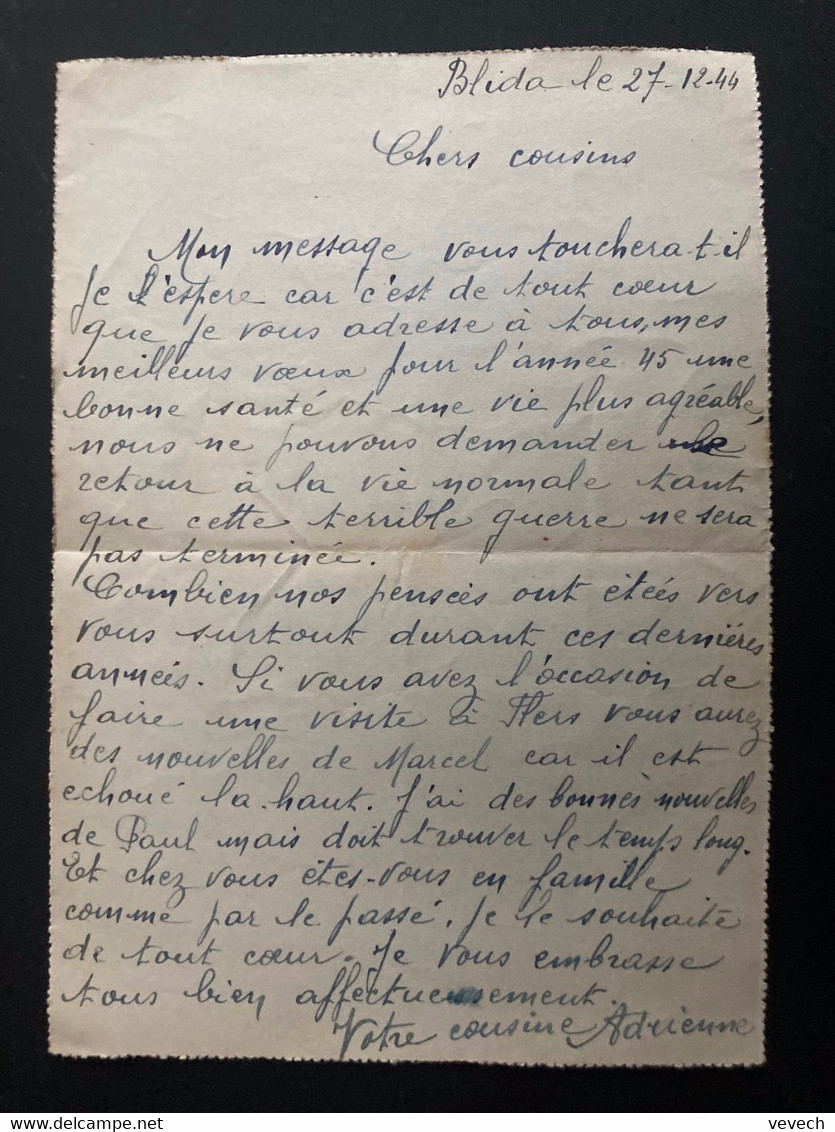 Blida le 27-12-44
Chers cousins
Mon message vous touchera-t-il
Je l'espere car c'est de tout cœur
que je vous adresse à tous, mes
meilleurs vœux pour l'année 45 une
bonne santé et une vie plus agréable,
nous ne pouvous demander le
retour à la vie normale tant
que cette terrible guerre ne sera
pas terminée.
Combien nos pensées ont étées vers
vous surtout durant ces dernières
années. Si vous avez l'occasion de
faire une visite à Flers vous aurez
des nouvelles de Marcel car il est
echoué la-haut. J'ai des bonnes nouvelles
de Paul mais doit trouver le temps long.
Et chez vous êtes-vous en famille
comme par le passé. Je le souhaite
de tout cœur. Je vous embrasse
tous bien affectueusement.
Votre cousine Adrienne
delcampe.net
vevech